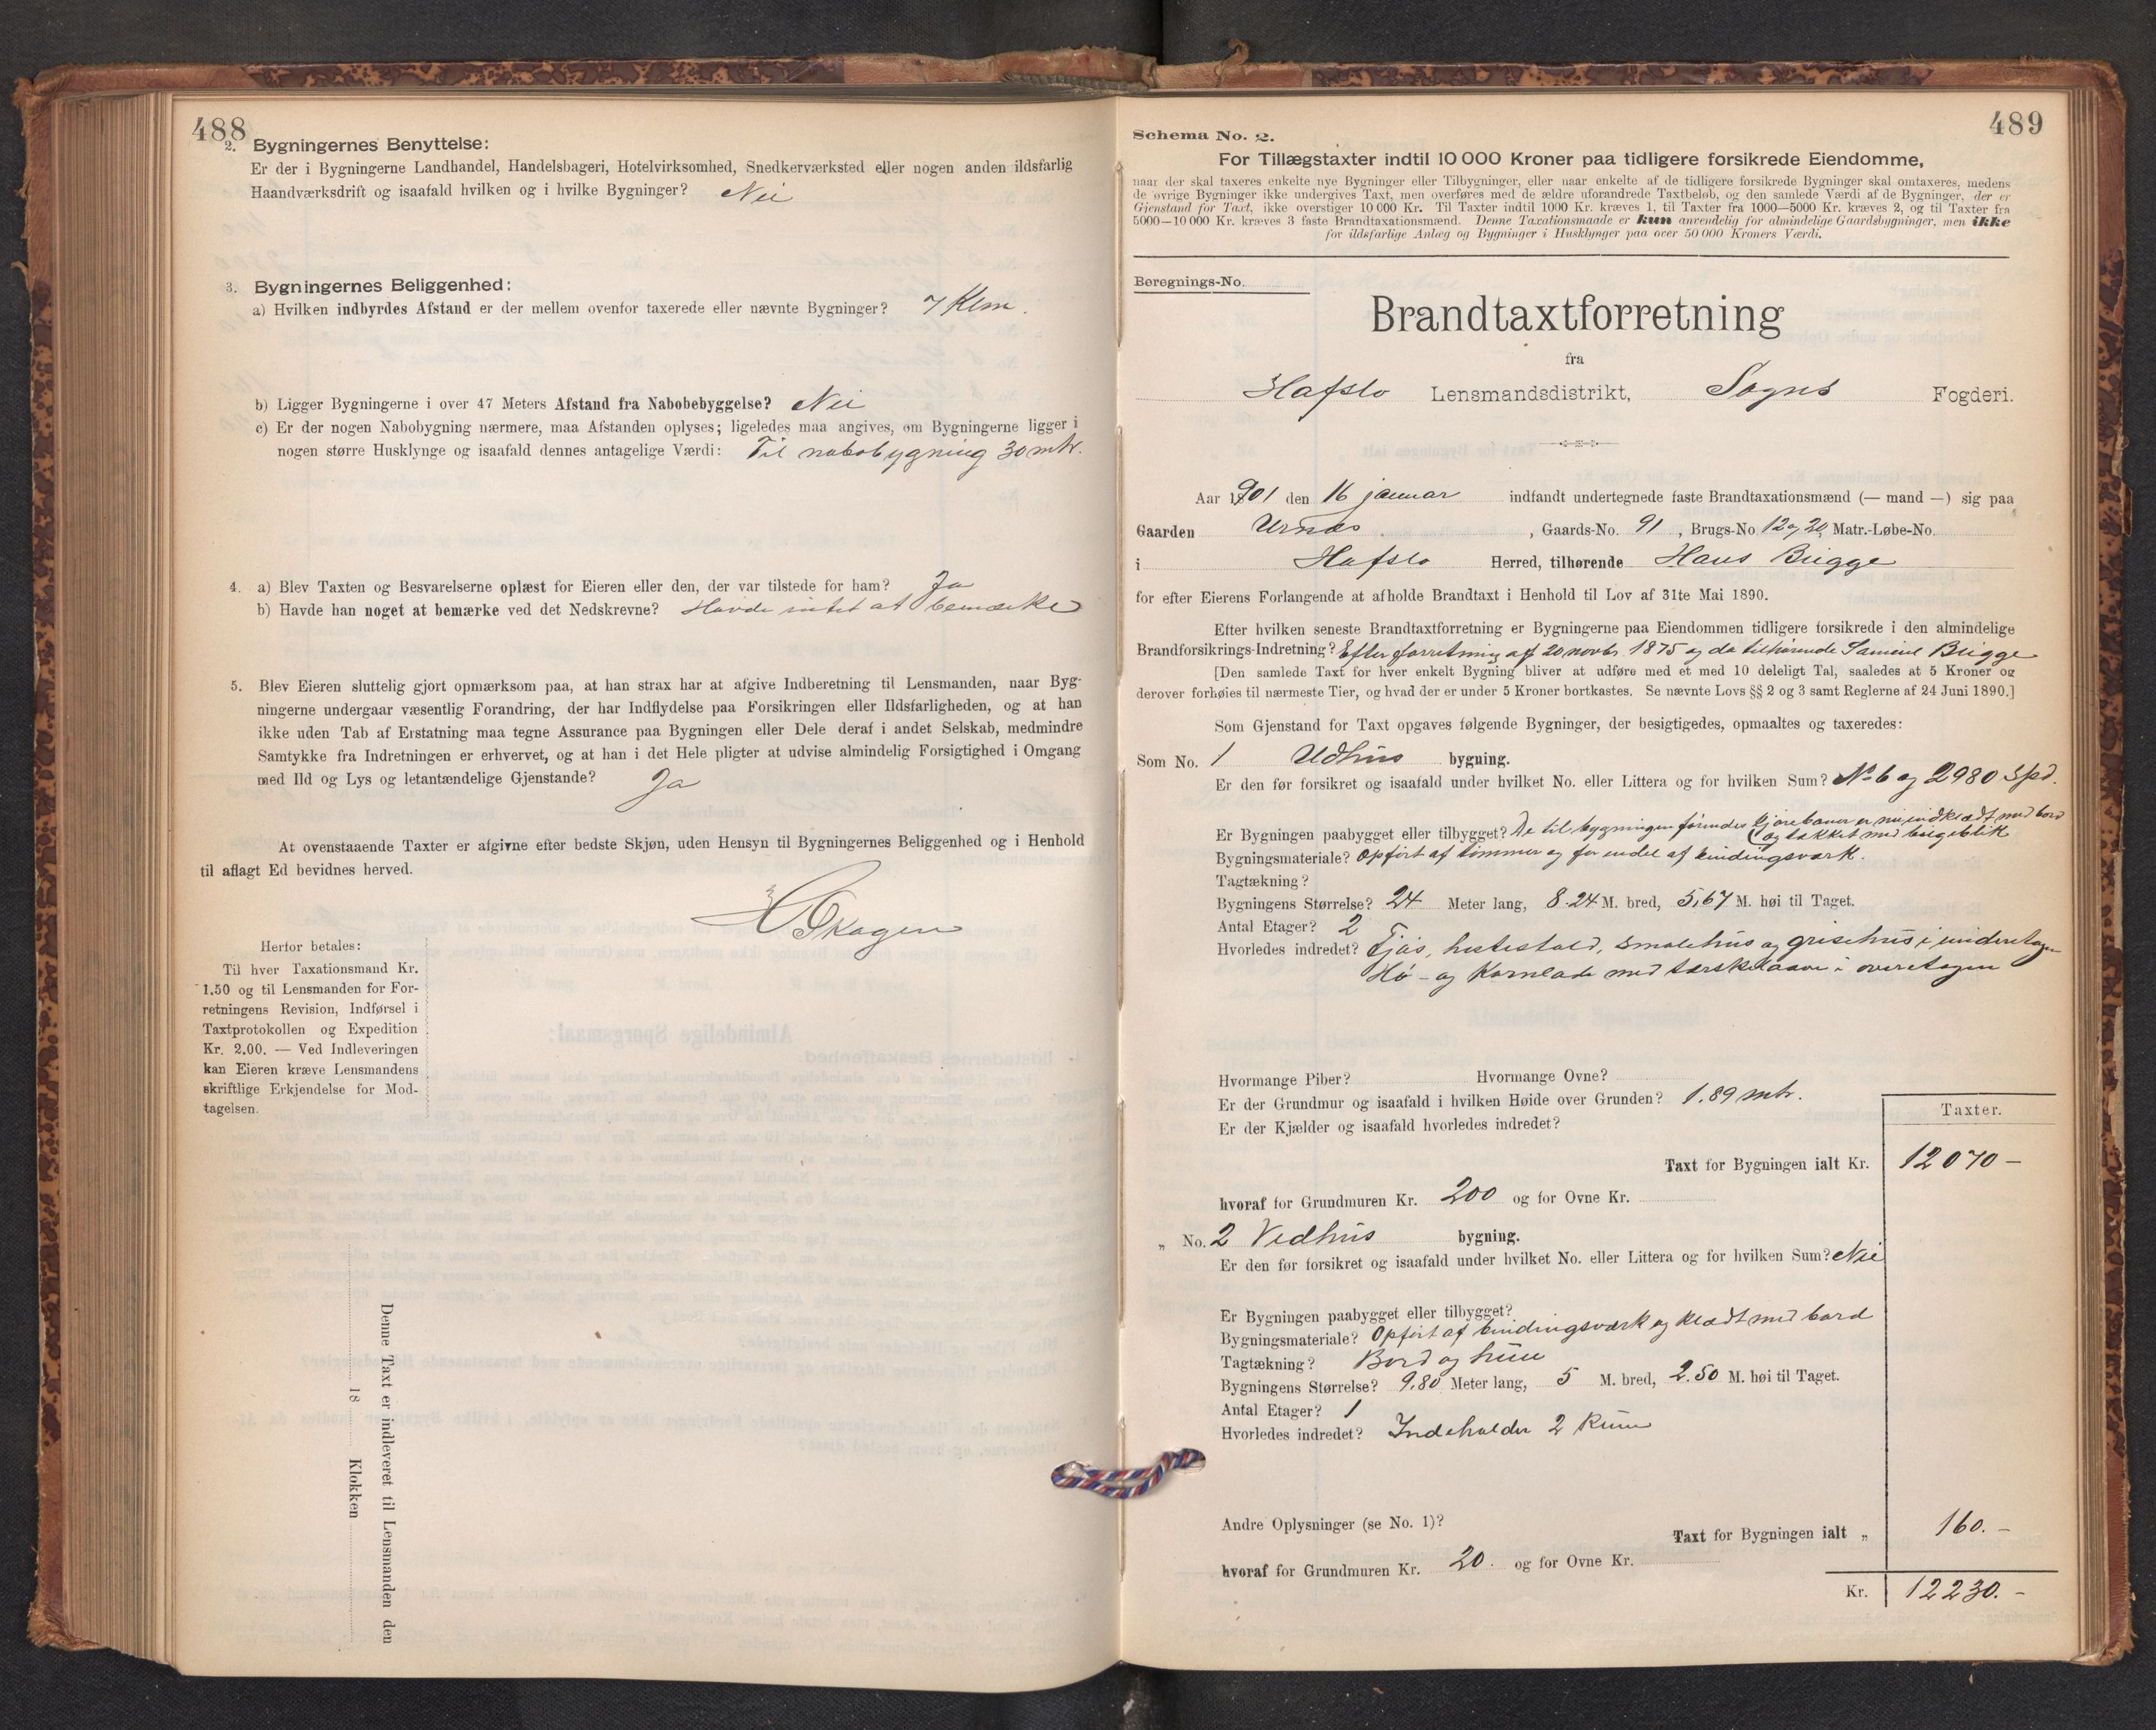 488
2. Bygningernes Benyttelse:
Er der i Bygningerne Landhandel, Handelsbageri, Hotelvirksomhed, Snedkerværksted eller nogen anden ildsfarlig
Haandværksdrift og isaafald hvilken og i hvilke Bygninger? Nei
3. Bygningernes Beliggenhed:
a) Hvilken indbyrdes Afstand er der mellem ovenfor taxerede eller nævnte Bygninger? 7 Klm.
b) Ligger Bygningerne i over 47 Meters Afstand fra Nabobebyggelse? Nei
c) Er der nogen Nabobygning nærmere, maa Afstanden oplyses; ligeledes maa angives, om Bygningerne ligger i
nogen større Husklynge og isaafald dennes antagelige Værdi: Til nabobygning 30 mtr.
4. a) Blev Taxten og Besvarelserne oplæst for Eieren eller den, der var tilstede for ham? Ja
b) Havde han noget at bemærke ved det Nedskrevne? Havde intet at bemærke
5. Blev Eieren sluttelig gjort opmærksom paa, at han strax har at afgive Indberetning til Lensmanden, naar Byg-
ningerne undergaar væsentlig Forandring, der har Indflydelse paa Forsikringen eller Ildsfarligheden, og at han
ikke uden Tab af Erstatning maa tegne Assurance paa Bygningen eller Dele deraf i andet Selskab, medmindre
Samtykke fra Indretningen er erhvervet, og at han i det Hele pligter at udvise almindelig Forsigtighed i Omgang
med Ild og Lys og letantændelige Gjenstande? Ja
At ovenstaaende Taxter er afgivne efter bedste Skjøn, uden Hensyn til Bygningernes Beliggenhed og i Henhold
til aflagt Ed bevidnes herved.
Skagen
Herfor betales:
Til hver Taxationsmand Kr.
1.50 og til Lensmanden for For-
retningens Revision, Indførsel i
Taxtprotokollen og Expedition
Kr. 2.00. — Ved Indleveringen
kan Eieren kræve Lensmandens
skriftlige Erkjendelse for Mod-
tagelsen.
Denne Taxt er indleveret til Lensmanden den
18 Klokken
489
Schema No. 2.
For Tillægstaxter indtil 10 000 Kroner paa tidligere forsikrede Eiendomme,
naar der skal taxeres enkelte nye Bygninger eller Tilbygninger, eller naar enkelte af de tidligere forsikrede Bygninger skal omtaxeres, medens
de øvrige Bygninger ikke undergives Taxt, men overføres med de ældre uforandrede Taxtbeløb, og den samlede Værdi af de Bygninger, der er
Gjenstand for Taxt, ikke overstiger 10 000 Kr. Til Taxter indtil 1000 Kr. kræves 1, til Taxter fra 1000—5000 Kr. kræves 2, og til Taxter fra
5000—10 000 Kr. kræves 3 faste Brandtaxationsmænd. Denne Taxationsmaade er kun anvendelig for almindelige Gaardsbygninger, men ikke
for ildsfarlige Anlæg og Bygninger i Husklynger paa over 50 000 Kroners Værdi.
Beregnings-No.
Brandtaxtforretning
fra
Hafslo Lensmandsdistrikt, Sogns Fogderi.
Aar 1901 den 16 januar indfandt undertegnede faste Brandtaxationsmænd (— mand —) sig paa
Gaarden Urnæs, Gaards-No. 91, Brugs-No 12 og 20, Matr.-Løbe-No.
i Hafslo Herred, tilhørende Hans Bugge
for efter Eierens Forlangende at afholde Brandtaxt i Henhold til Lov af 31te Mai 1890.
Efter hvilken seneste Brandtaxtforretning er Bygningerne paa Eiendommen tidligere forsikrede i den almindelige
Brandforsikrings-Indretning? Efter forretning af 20 novbr. 1875 og da tilhørende Samuel Bugge
[Den samlede Taxt for hver enkelt Bygning bliver at udføre med et med 10 deleligt Tal, saaledes at 5 Kroner og
derover forhøies til nærmeste Tier, og hvad der er under 5 Kroner bortkastes. Se nævnte Lovs §§ 2 og 3 samt Reglerne af 24 Juni 1890.]
Som Gjenstand for Taxt opgaves følgende Bygninger, der besigtigedes, opmaaltes og taxeredes:
Som No. 1 Udhus bygning.
Er den før forsikret og isaafald under hvilket No. eller Littera og for hvilken Sum? No 6 og 2980 Spd.
Er Bygningen paabygget eller tilbygget? De til bygningen førendes kjørebroer er nu indklædt med bord
og tækket med bølgeblik
Bygningsmateriale? Opført af tømmer og for endel af bindingsværk.
Tagtækning?
Bygningens Størrelse? 24 Meter lang, 8.24 M. bred, 5,67 M. høi til Taget.
Antal Etager? 2
Hvorledes indredet? Fjøs, hestestald, smalehus og grisehus i underetagen
Hø- og Kornlade med tærskelaave i overetagen
Hvormange Piber? Hvormange Ovne?
Er der Grundmur og isaafald i hvilken Høide over Grunden? 1.89 mtr.
Er der Kjælder og isaafald hvorledes indredet?
Taxter.
Taxt for Bygningen ialt Kr. 12070 —
hvoraf for Grundmuren Kr. 200 og for Ovne Kr.
„ No. 2 Vedhus bygning.
Er den før forsikret og isaafald under hvilket No. eller Littera og for hvilken Sum? Nei
Er Bygningen paabygget eller tilbygget?
Bygningsmateriale? Opført af bindingsværk og klædt med bord
Tagtækning? Bord og
Bygningens Størrelse? 9.80 Meter lang, 5 M. bred, 2.50 M. høi til Taget.
Antal Etager? 1
Hvorledes indredet? Indeholder 2 Rum
Andre Oplysninger (se No. 1)?
Taxt for Bygningen ialt „ 160. —
hvoraf for Grundmuren Kr. 20. og for Ovne Kr.
Kr. 12230. —